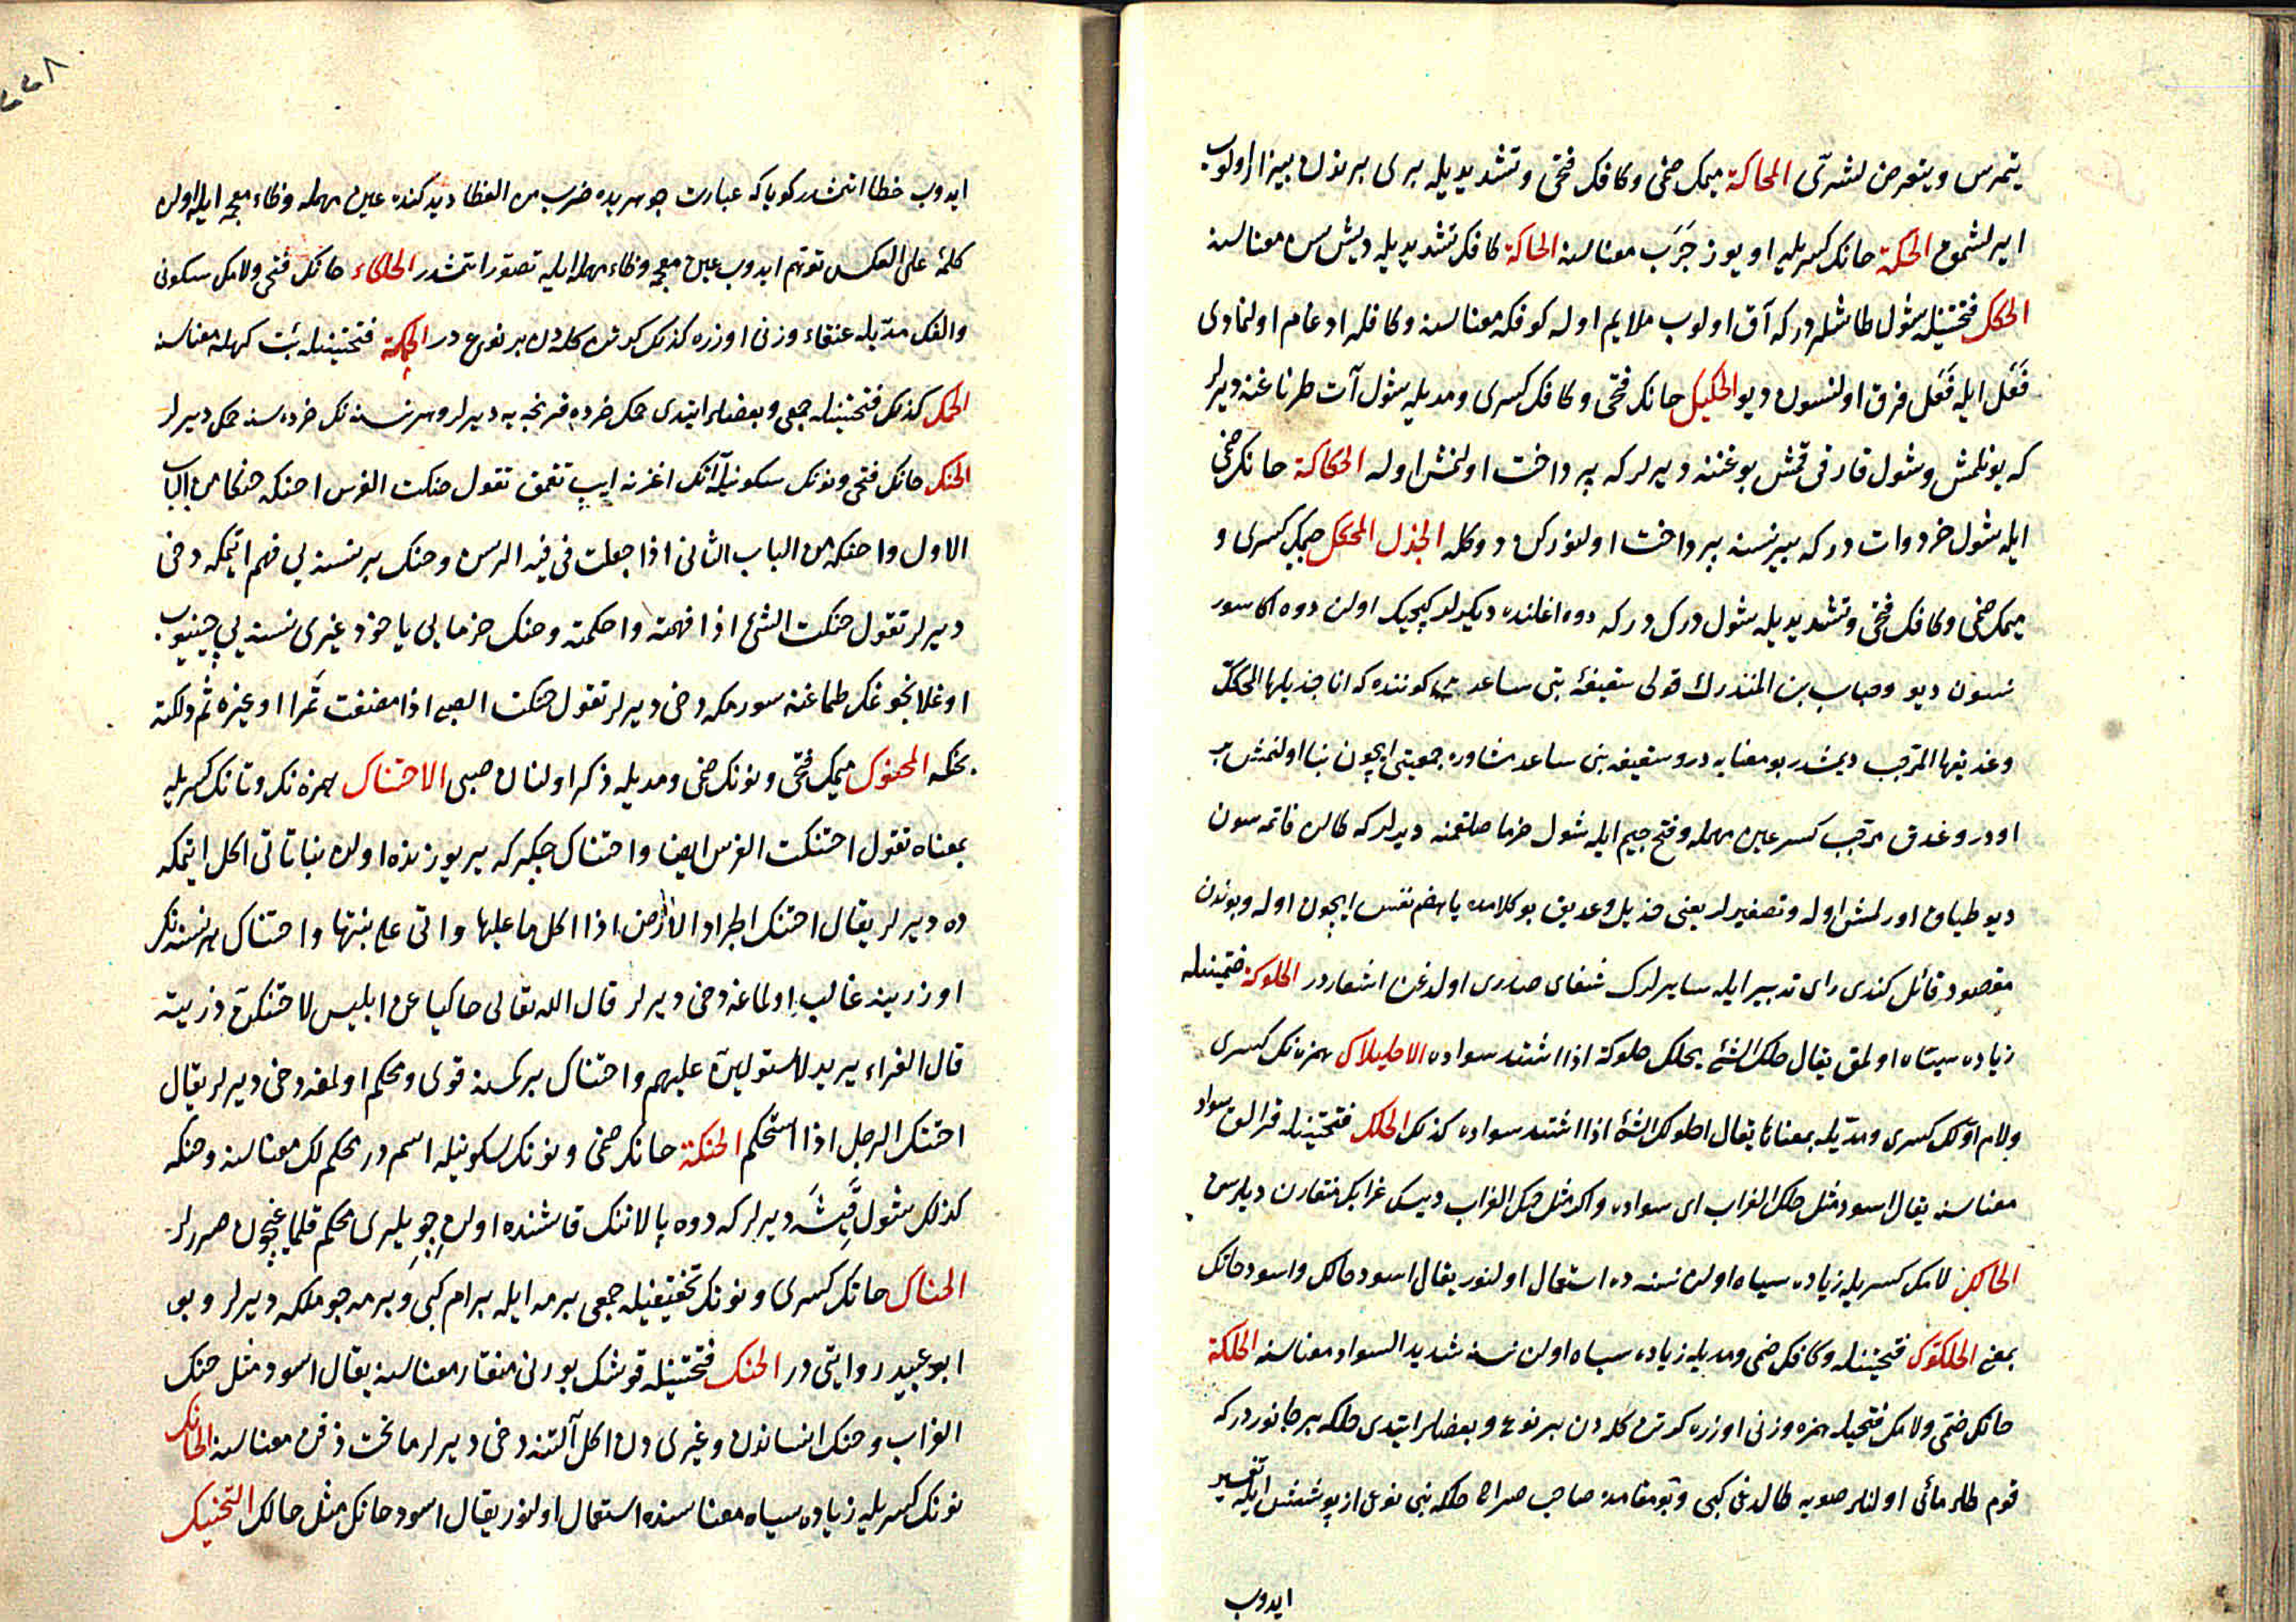 يتمرس ويتعرض لشرّى المحاكة ميمك ضمى وكافك فتحى وتشديديله برى برندن بيزار اولوب
الحكة حانك كسريله اويوز جرب معناسنه الحاكة كافك تشديديله ديش سن معناسنه
الحكك فتحتينله شول طاشلردر كه آق اولوب ملايم اوله كوفكه معناسنه وكافله ادغام اولنمادى
فَعَل ايله فَعْل فرق اولنسون ديو الحكيك حانك فتحى وكافك كسرى ومديله شول آت طرناغنه ديرلر
كه يونلمش وشول قارنى قمش بوغننه ديرلر كه پرداخت اولنمش اوله الحكاكة حانك ضمى
ايله شول خردوات در كه بير نسنه پرداخت اولنوركن دوكله الجذل المحكك جيمك كسرى و
ميمك ضمى وكافك فتحى وتشديديله شول دركدر كه دوه اغلنده ديكرلر كيجيك اولن دوه اكا سور
نسون ديو وحباب بن المنذرك قولى سقيفهٔ بنى ساعد كوننده كه انا جذيلها المحكك
وعذيقها المرجب ديمشدر بو معنايه در وسقيفه بنى ساعد مشاوره جمعيتى ايچون بنا اولنمش بر
اودر وعذق مرجب كسر عين مهمله وفتح جيم ايله شول خرما صالقمنه ديرلر كه
ديو طياق اورلمش اوله وتصغيرلر يعنى جذيل وعذيق بو كلامده يا هضم نفس ايچون اوله وبوندن
مقصود قائل كندى راى تدبير ايله سايرلرك شفاى صدرى اولدغن اشعاردر الحلوكة ضمتينله
زياده سياه اولمق يقال حلك الشئ يحلك حلوكة اذا اشتد سواده الاحليلاك همزه نك كسرى
ولام اولك كسرى ومديله بمعناها يقال احلولك الشئ اذا اشتد سواده كذلك الحلك فتحتينله قرالق سواد
معناسنه يقال اسود مثل حلك الغراب اى سواده واكر مثل حنك الغراب ديسك غرابك منقارن ديلرسن
الحالك لامك كسريله زياده سياه اولن نسنه ده استعمال اولنور يقال اسود حالك واسود حانك
بمعنى الحلكوك فتحتينله وكافك ضمى ومديله زياده سياه اولن نسنه شديد السواد معناسنه الحلكة
حانك ضمى ولامك فتحيله همزه وزنى اوزره كوترن كله دن بر نوع وبعضلر ايتدى حلكه بر جانوردر كه
قوم طلر مائى اولنلر صويه طالدغى كبى وبو مقامده صاحب صراح حلكه نى نوعى از پوشش ايله تفسير
ايدوب
ايدوب خطا ايتمشدر كويا كه عبارت جوهريده ضرب من العظا ديدكنده عين مهمله وظاء معجمه ايله اولن
كلمه على العكس توهم ايدوب عين معجمه وطاء مهمله ايله تصور ايتمشدر الحلكاء حانك فتحى ولامك سكونى
والفك مديله عنقاء وزنى اوزره كذلك كوترن كله دن بر نوع در الحمكة فتحتينله بت كهله معناسنه
الحمك كذلك فتحتينله جمعى وبعضلر ايتدى حمك خرده قرنجه يه ديرلر وهر نسنه نك خرده سنه حمك ديرلر
الحنك حانك فتحى ونونك سكونيله آتك اغزنه ايپ تقمق تقول حنكت الفرس احنكه حنكا من الباب
الاول واحنكه من الباب الثانى اذا جعلت فى فيه الرسن وحنك بر نسنه يى فهم ايتمكه دخى
ديرلر تقول حنكت الشئ اذا فهمته واحكمته وحنك خرمايى يا خود غيرى نسنه يى چينيوب
اوغلانجوغك طماغنه سورمكه دخى ديرلر تقول حنكت الصبى اذا مضغت تمرا او غيره ثم دلكته
بحنكه المحنوك ميمك فتحى ونونك ضمى ومديله ذكر اولنان صبى الاحتناك همزه نك وتانك كسريله
بمعناه تقول احتنكت الفرس ايضا واحتناك چكركه ير يوزنده اولن نباتاتى اكل ايتمكه
ده ديرلر يقال احتنك الجراد الارض اذا اكل ما عليها واتى على نبتها واحتناك بر نسنه نك
اوزرينه غالب اولماغه دخى ديرلر قال الله تعالى حاكيا عن ابليس لاحتنكن ذريته
قال الفراء يريد لاستولين عليهم واحتناك بر كسنه قوى ومحكم اولمغه دخى ديرلر يقال
احتنك الرجل اذا استحكم الحنكة حانك ضمى ونونك سكونيله اسم در محكملك معناسنه وحنكه
كذلك شول قيشه ديرلر كه دوه پالاننك قاشنده اولن چويلرى محكم قلماغچون صررلر
الحناك حانك كسرى ونونك تخفيفيله جمعى برمه ايله برام كبى وبرمه چوملكه ديرلر وبو
ابو عبيد روايتى در الحنك فتحتينله قوشك بورنى منقار معناسنه يقال اسود مثل حنك
الغراب وحنك انساندن وغيرى دن اكل آلتنه دخى ديرلر ما تحت ذقن معناسنه الحانك
نونك كسريله زياده سياه معناسنده استعمال اولنور يقال اسود حانك مثل حالك التحنيك